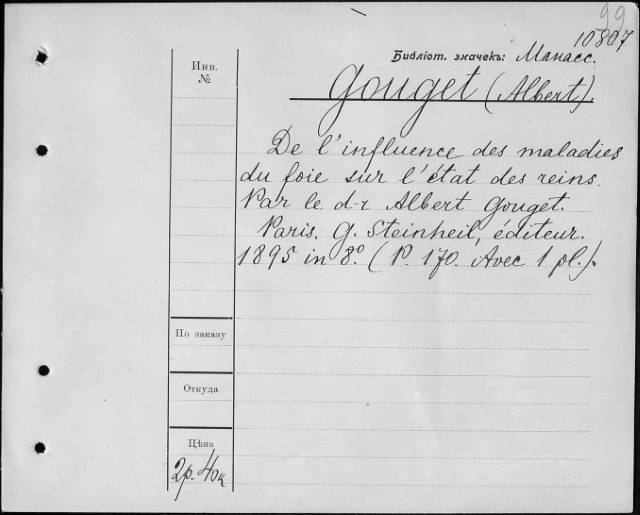 99
10807
Библіот. значекъ: Манасс.
Инв.
№
Gouget (Albert).
De l'influence des maladies
du foie sur l'état des reins.
Par le d-r Albert Gouget.
Paris. G. Steinheil, éditeur.
1895 in 8.° (P. 170. Avec 1 pl.).
По заказу
Откуда
Цѣна
2р. 40к